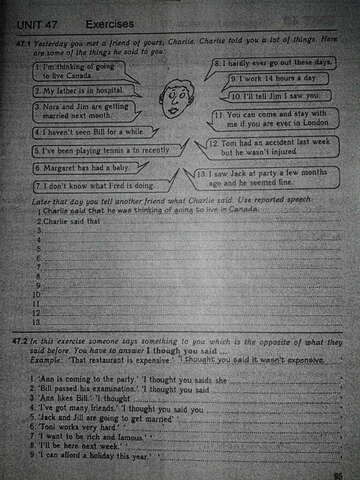 UNIT 47 Exercises
47.1 Yesterday you met a friend of yours, Charlie. Charlie told you a lot of things. Here
are some of the things he said to you:
1. I'm thinking of going
to live Canada.
2. My father is in hospital.
3. Nora and Jim are getting
married next month.
4. I haven't seen Bill for a while.
5. I've been playing tennis a lo recently
6. Margaret has had a baby.
7. I don't know what Fred is doing.
8. I hardly ever go out these days.
9. I work 14 hours a day
10. I'll tell Jim I saw you.
11. You can come and stay with
me if you are ever in London
12. Tom had an accident last week
but he wasn't injured.
13. I saw Jack at party a few months
ago and he seemed fine.
Later that day you tell another friend what Charlie said. Use reported speech.
1. Charlie said that he was thinking of going to live in Canada.
2. Charlie said that
3.
4.
5.
6.
7.
8.
9.
10.
11.
12.
13.
47.2 In this exercise someone says something to you which is the opposite of what they
said before. You have to answer I though you said ...
Example: 'That restaurant is expensive.' 'I thought you said it wasn't expensive.
1. 'Ann is coming to the party.' 'I thought you saids she
2. 'Bill passed his examination.' 'I thought you said
3. 'Ann likes Bill.' 'I thought
4. 'I've got many friends.' 'I thought you said you
5. 'Jack and Jill are going to get married' '
6. 'Toni works very hard.' '
7. 'I want to be rich and famous.' '
8. 'I'll be here next week.' '
9. 'I can afford a holiday this year.' '
95